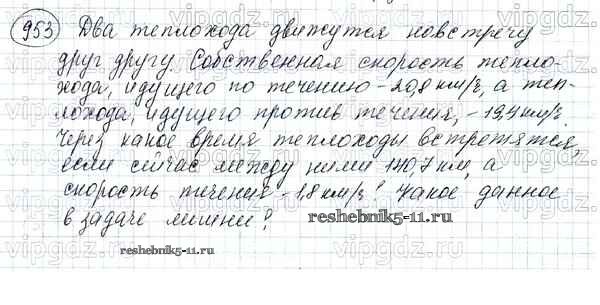 953 Два теплохода движутся навстречу
друг другу. Собственная скорость тепло-
хода, идущего по течению - 20,8 км/ч, а теп-
лохода, идущего против течения, - 19,4 км/ч.
Через какое время теплоходы встретятся,
если сейчас между ними 140,7 км, а
скорость течения - 1,8 км/ч? Какое данное
в задаче лишнее?
reshebnik5-11.ru
reshebnik5-11.ru
vipgdz.ru